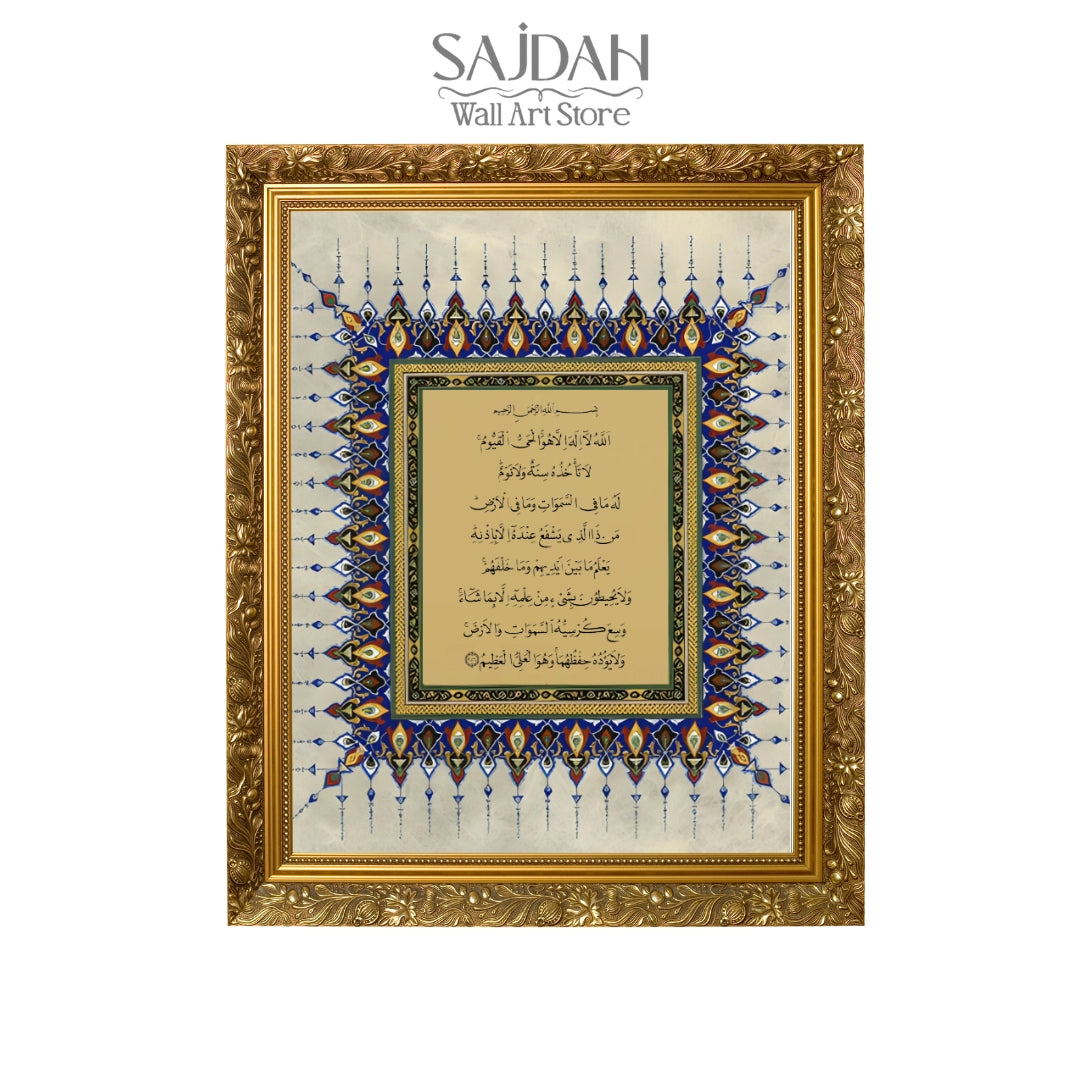 SAJDAH
Wall Art Store
بِسْمِ اللهِ الرَّحْمٰنِ الرَّحِيمِ
اَللّٰهُ لَآ اِلٰهَ اِلَّا هُوَۚ اَلْحَيُّ الْقَيُّومُۚ
لَا تَأْخُذُهُ سِنَةٌ وَلَا نَوْمٌۜ
لَهُ مَا فِي السَّمٰوَاتِ وَمَا فِي الْاَرْضِۜ
مَنْ ذَا الَّذِي يَشْفَعُ عِنْدَهُٓ اِلَّا بِاِذْنِهِۜ
يَعْلَمُ مَا بَيْنَ اَيْدِيهِمْ وَمَا خَلْفَهُمْۚ
وَلَا يُحِيطُونَ بِشَيْءٍ مِنْ عِلْمِهِٓ اِلَّا بِمَا شَٓاءَۚ
وَسِعَ كُرْسِيُّهُ السَّمٰوَاتِ وَالْاَرْضَۚ
وَلَا يَؤُ۫دُهُ حِفْظُهُمَاۚ وَهُوَ الْعَلِيُّ الْعَظِيمُ